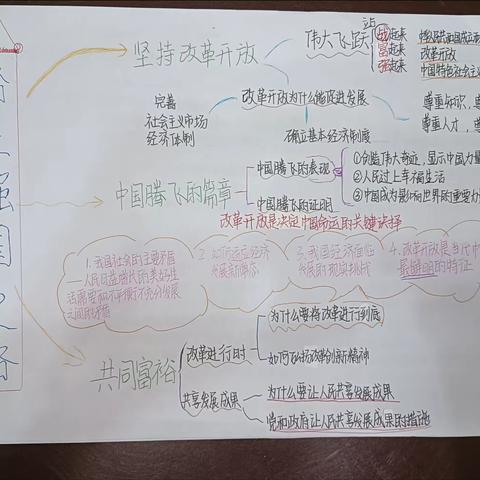 踏上强国之路
坚持改革开放
伟大飞跃
站起来
富起来
强起来
改革开放
中国特色社会主义
改革开放为什么能促进发展
完善
社会主义市场
经济体制
确立基本经济制度
尊重知识,尊
尊重人才,尊
中国腾飞的篇章
中国腾飞的表现
①创造伟大奇迹,显示中国力量
②人民过上幸福生活
③中国成为影响世界的重要力
中国腾飞的证明
改革开放是决定中国命运的关键抉择
1.我国社会的主要矛盾
人民日益增长的美好生
活需要和不平衡不充分发展
之间的矛盾
2.如何适应经济
发展新常态
3.我国经济面临
发展的现实挑战
4.改革开放是当代中
最鲜明的特征
共同富裕
改革进行时
为什么要将改革进行到底
如何弘扬改革创新精神
共享发展成果
为什么要让人民共享发展成果
党和政府让人民共享发展成果的措施